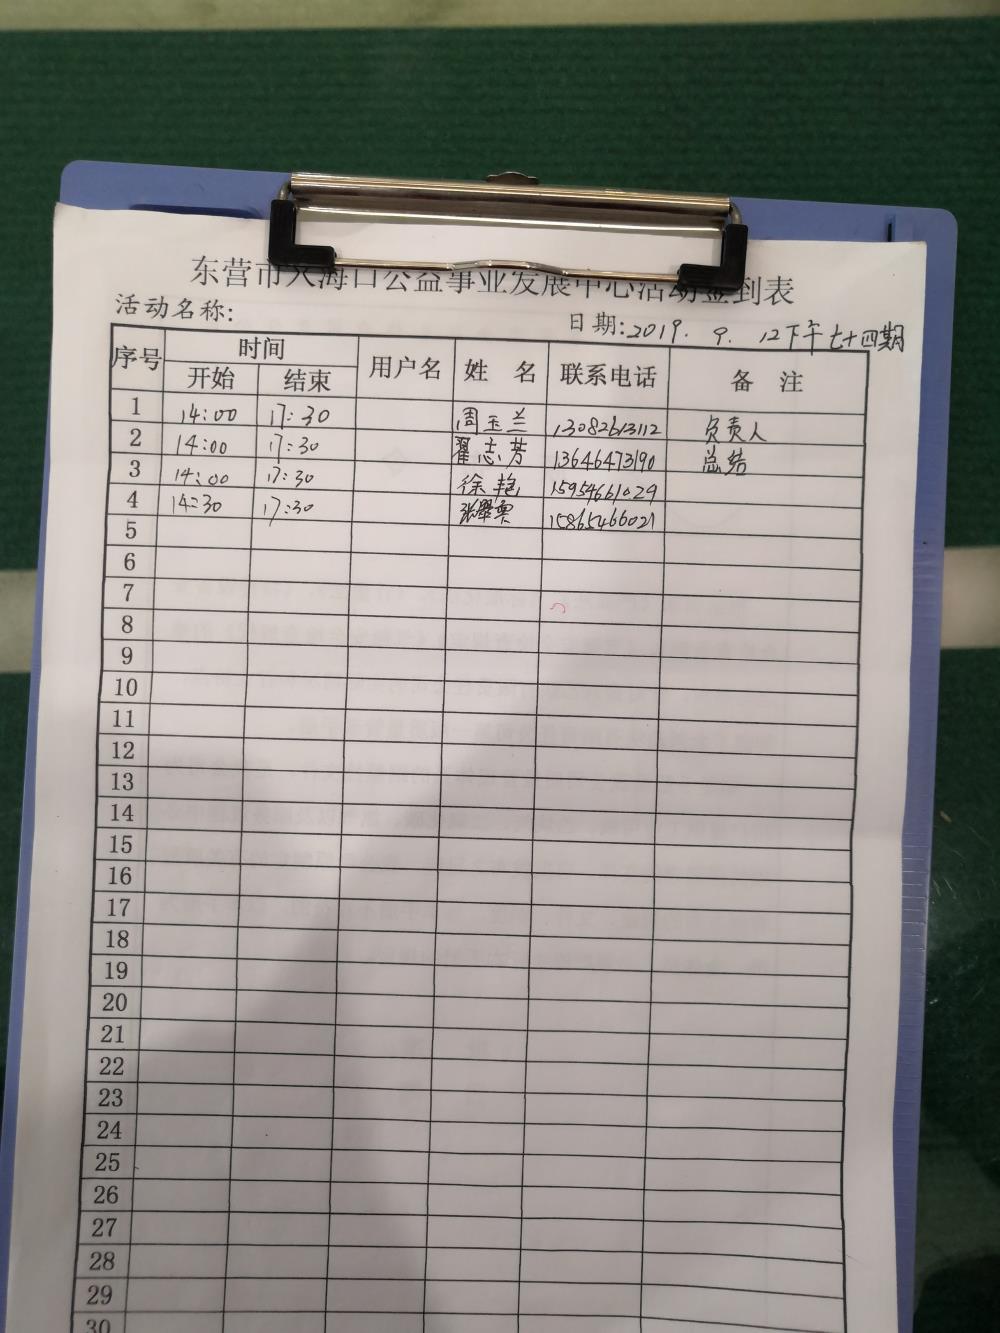 东营市入海口公益事业发展中心活动签到表
活动名称: 日期:2019.9.12下午七十四期
序号 时间 用户名 姓名 联系电话 备注
开始 结束
1 14:00 17:30 周玉兰 13082613112 负责人
2 14:00 17:30 翟志芳 13646473190 总结
3 14:00 17:30 徐艳 15954661029
4 14:30 17:30 15865466021
5
6
7
8
9
10
11
12
13
14
15
16
17
18
19
20
21
22
23
24
25
26
27
28
29
30